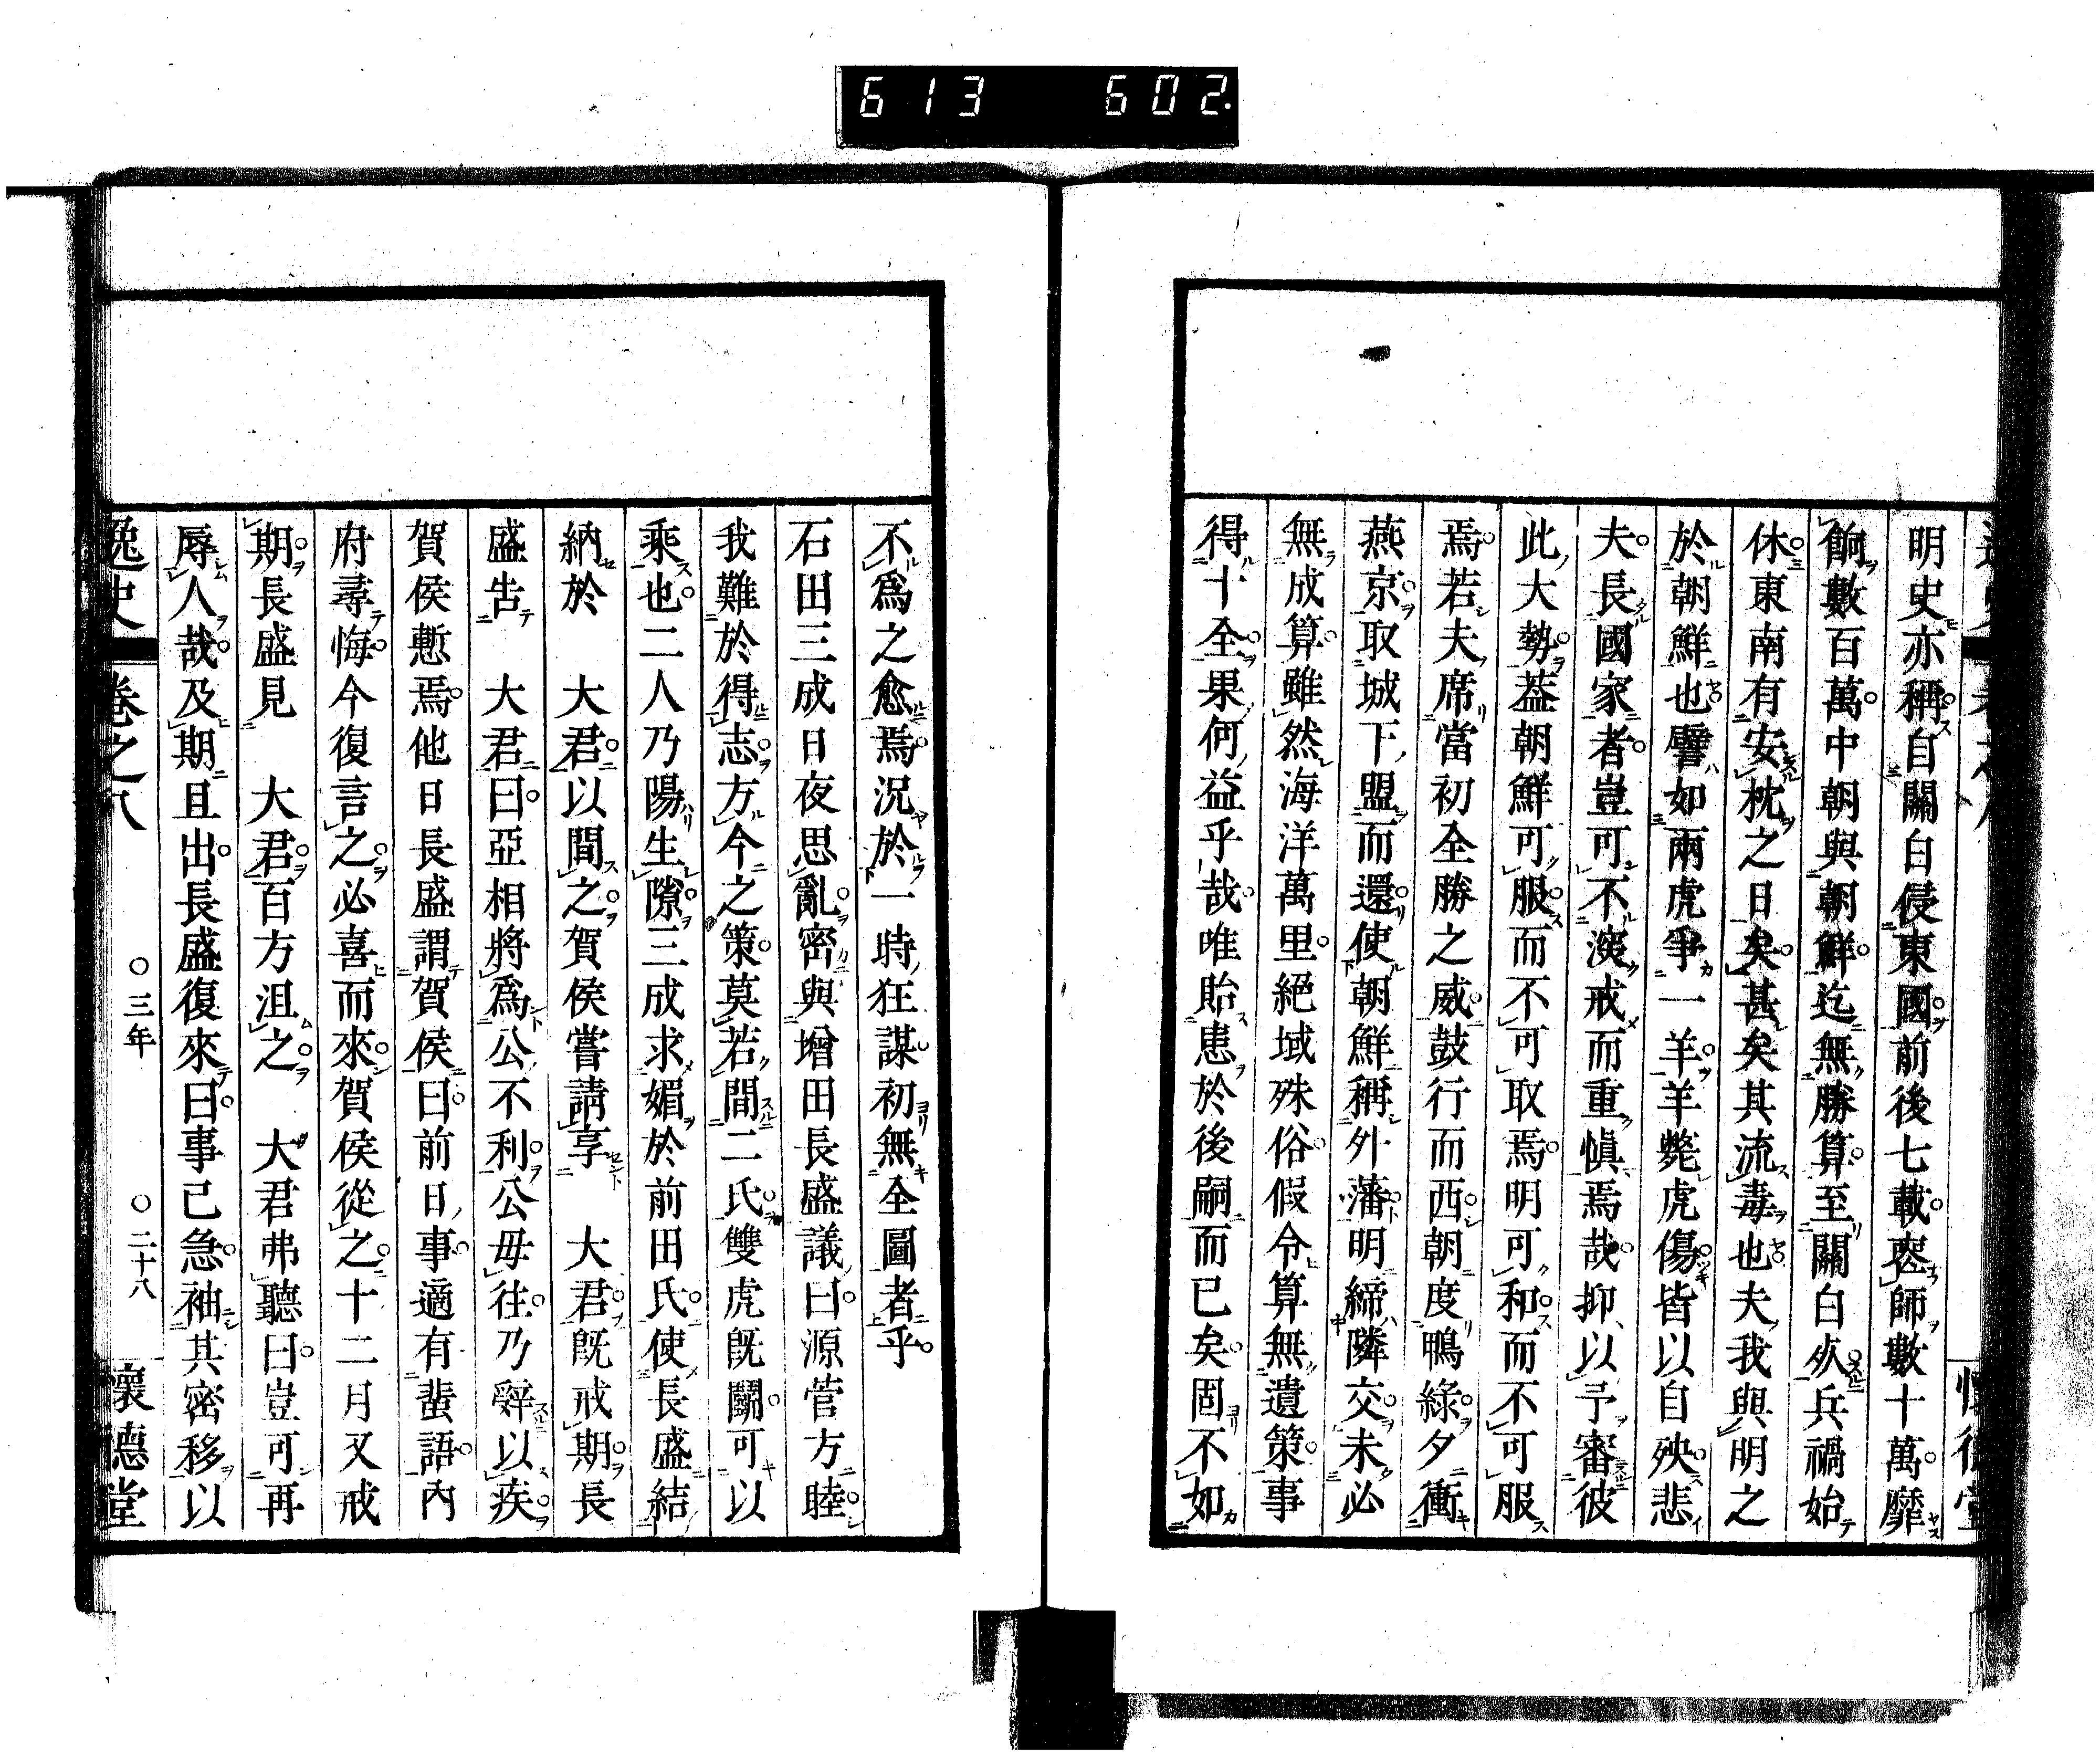 613 602.
明史亦稱自關白侵東國前後七載喪師數十萬靡
餉數百萬中朝與朝鮮迄無勝算至關白死兵禍始
休東南有安枕之日矣甚矣其流毒也夫我與明之
於朝鮮也譬如兩虎爭一羊羊斃虎傷皆以自殃悲
夫長國家者豈可不深戒而重愼焉哉抑以予審彼
此大勢葢朝鮮可服而不可取焉明可和而不可服
焉若夫席當初全勝之威鼓行而西朝度鴨綠夕衝
燕京取城下盟而還使朝鮮稱外藩明締隣交未必
無成算雖然海洋萬里絕域殊俗假令算無遺策事
得十全果何益乎哉唯貽患於後嗣而已矣固不如
不爲之愈焉況於一時狂謀初無全圖者乎
石田三成日夜思亂密與增田長盛議曰源菅方睦
我難於得志方今之策莫若間二氏雙虎旣鬭可以
乘也二人乃陽生隙三成求媚於前田氏使長盛結
納於 大君以間之賀侯嘗請享 大君旣戒期長
盛告 大君曰亞相將爲公不利公毋往乃辭以疾
賀侯慙焉他日長盛謂賀侯曰前日事適有蜚語內
府尋悔今復言之必喜而來賀侯從之十二月又戒
期長盛見 大君百方沮之 大君弗聽曰豈可再
辱人哉及期且出長盛復來曰事已急袖其密移以
逸史 卷之八 ○三年 ○二十八 懷德堂